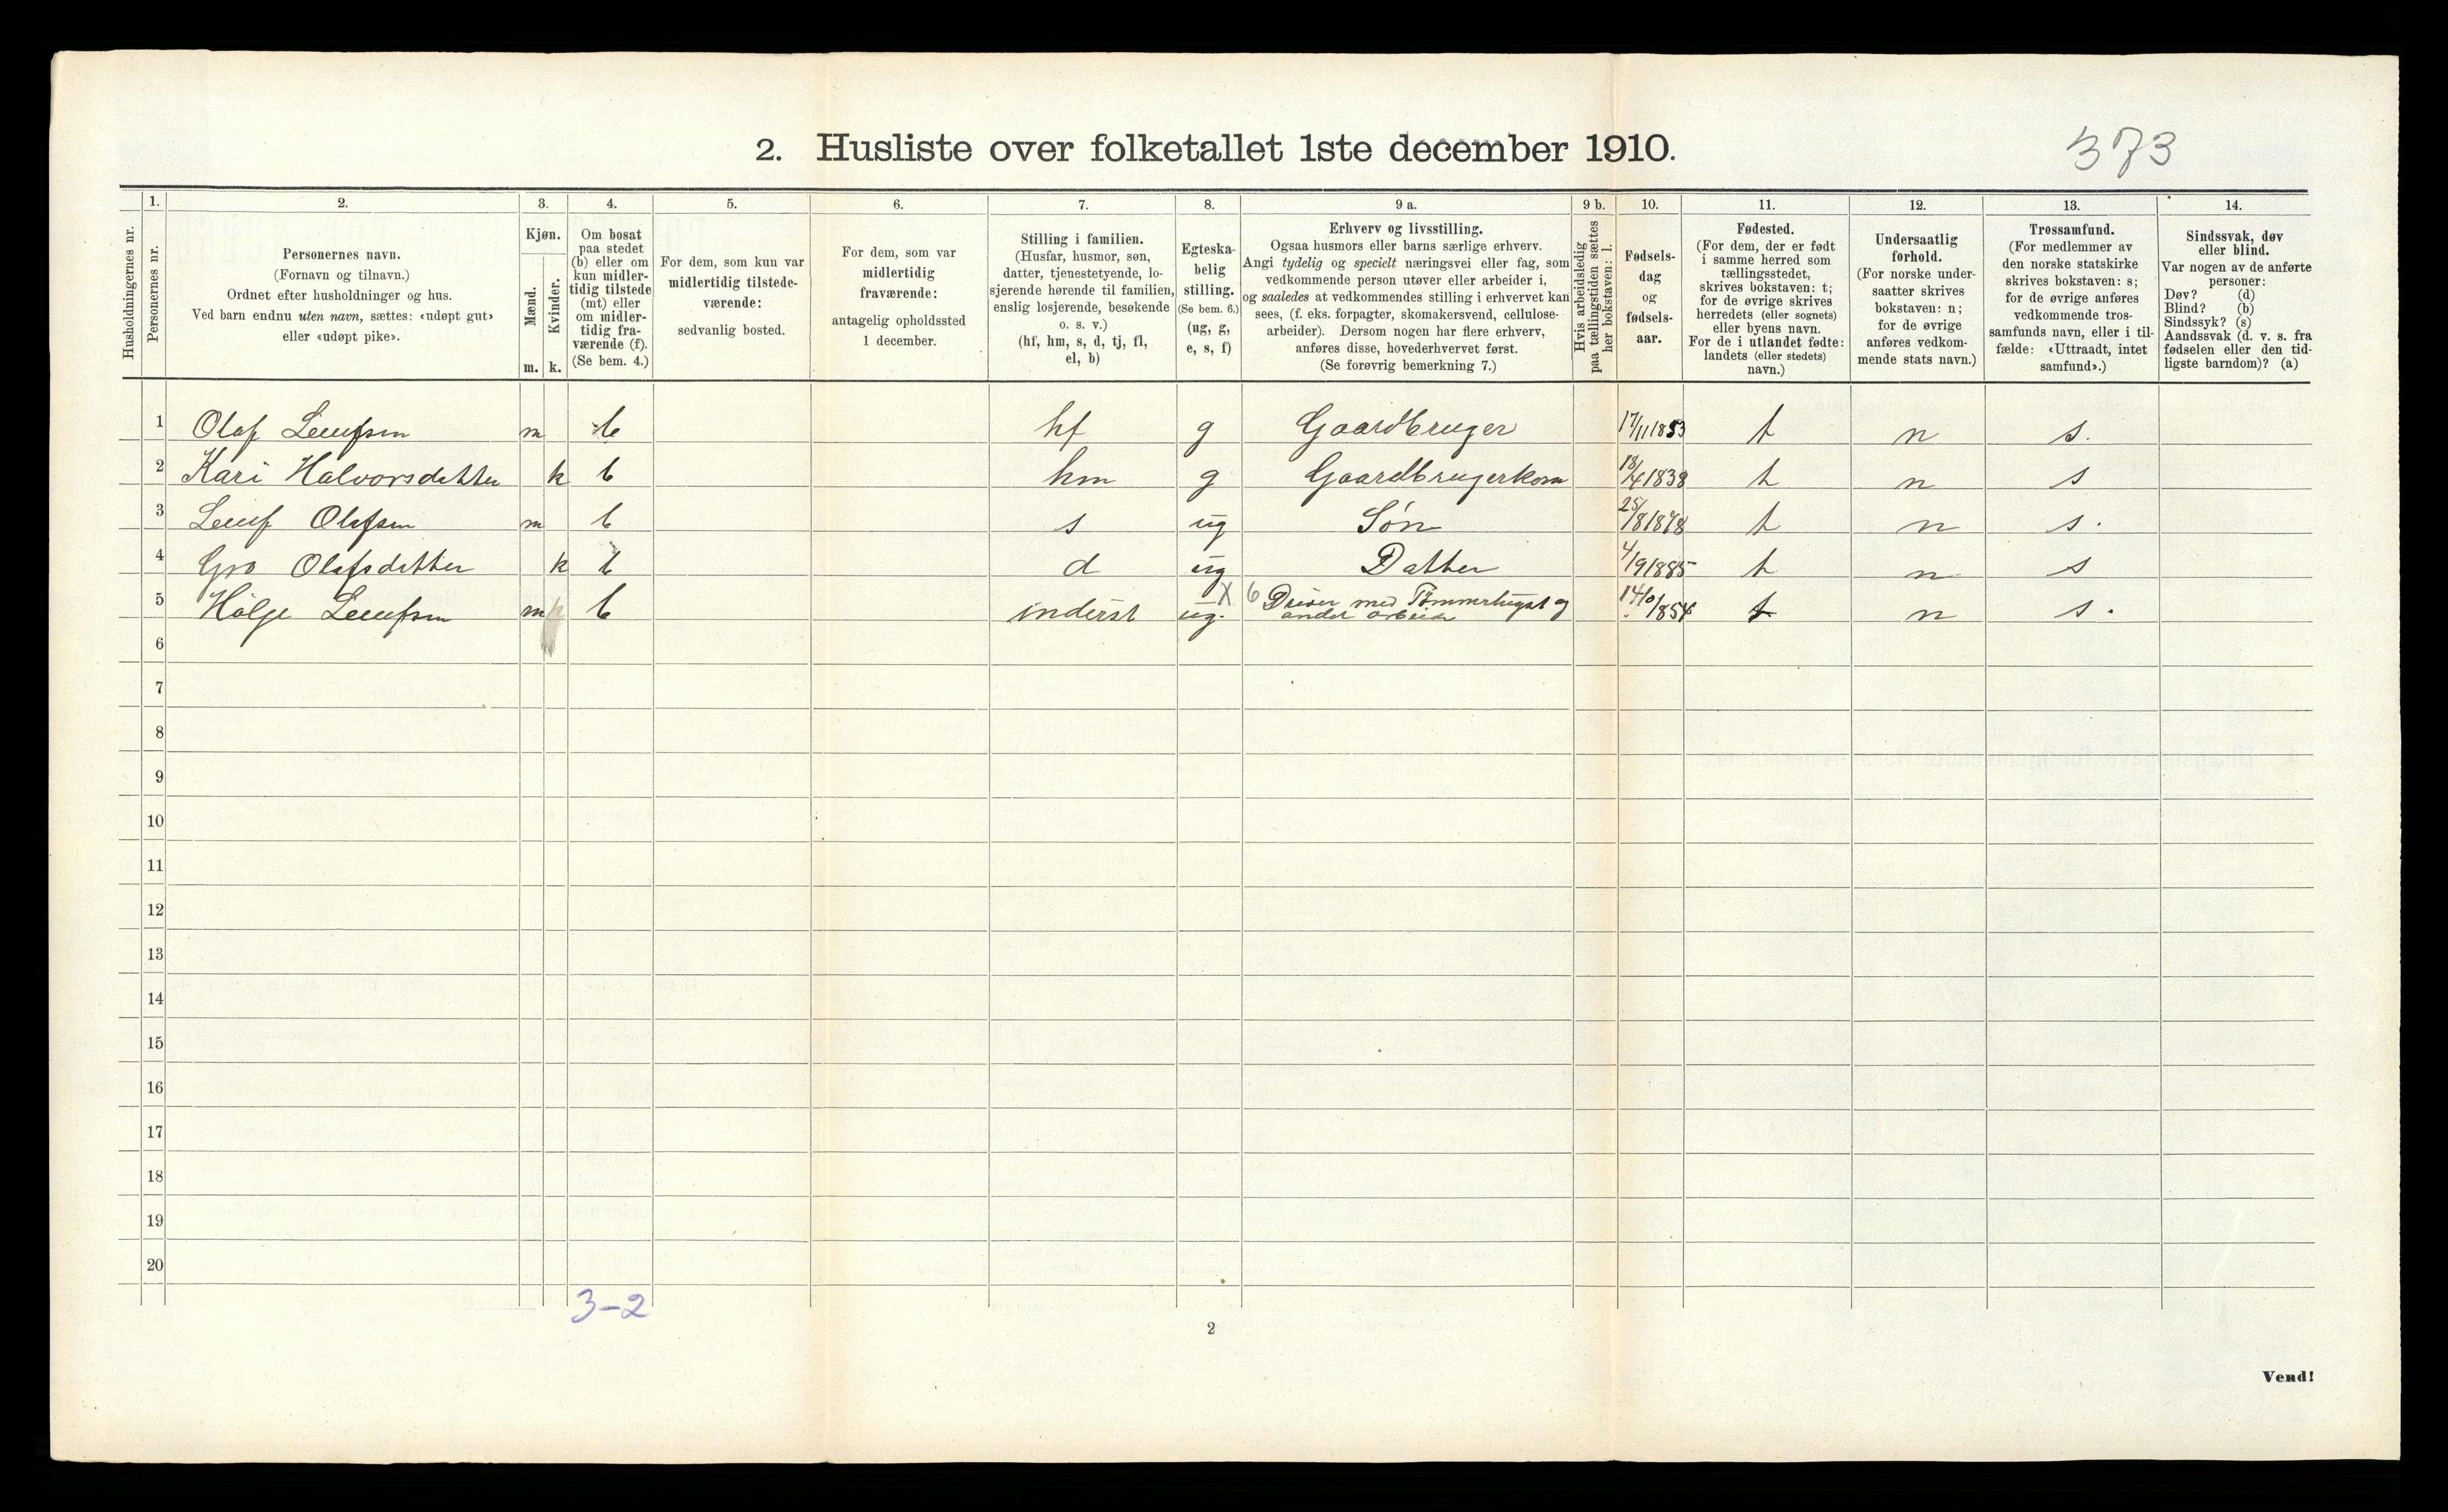 2. Husliste over folketallet 1ste december 1910.
373
Husholdningernes nr.
1. Personernes nr.
2. Personernes navn.
(Fornavn og tilnavn.)
Ordnet efter husholdninger og hus.
Ved barn endnu uten navn, sættes: «udøpt gut»
eller «udøpt pike».
3. Kjøn.
Mænd. m.
Kvinder. k.
4. Om bosat
paa stedet
(b) eller om
kun midler-
tidig tilstede
(mt) eller
om midler-
tidig fra-
værende (f).
(Se bem. 4.)
5. For dem, som kun var
midlertidig tilstede-
værende:
sedvanlig bosted.
6. For dem, som var
midlertidig
fraværende:
antagelig opholdssted
1 december.
7. Stilling i familien.
(Husfar, husmor, søn,
datter, tjenestetyende, lo-
sjerende hørende til familien,
enslig losjerende, besøkende
o. s. v.)
(hf, hm, s, d, tj, fl,
el, b)
8. Egteska-
belig
stilling.
(Se bem. 6.)
(ug, g,
e, s, f)
9 a. Erhverv og livsstilling.
Ogsaa husmors eller barns særlige erhverv.
Angi tydelig og specielt næringsvei eller fag, som
vedkommende person utøver eller arbeider i,
og saaledes at vedkommendes stilling i erhvervet kan
sees, (f. eks. forpagter, skomakersvend, cellulose-
arbeider). Dersom nogen har flere erhverv,
anføres disse, hovederhvervet først.
(Se forøvrig bemerkning 7.)
9 b. Hvis arbeidsledig
paa tællingstiden sættes
her bokstaven: l.
10. Fødsels-
dag
og
fødsels-
aar.
11. Fødested.
(For dem, der er født
i samme herred som
tællingsstedet,
skrives bokstaven: t;
for de øvrige skrives
herredets (eller sognets)
eller byens navn.
For de i utlandet fødte:
landets (eller stedets)
navn.)
12. Undersaatlig
forhold.
(For norske under-
saatter skrives
bokstaven: n;
for de øvrige
anføres vedkom-
mende stats navn.)
13. Trossamfund.
(For medlemmer av
den norske statskirke
skrives bokstaven: s;
for de øvrige anføres
vedkommende tros-
samfunds navn, eller i til-
fælde: «Uttraadt, intet
samfund».)
14. Sindssvak, døv
eller blind.
Var nogen av de anførte
personer:
Døv? (d)
Blind? (b)
Sindssyk? (s)
Aandssvak (d. v. s. fra
fødselen eller den tid-
ligste barndom)? (a)
1 Olaf Leufsen m b hf g Gaardbruger 17/11 1853 t n s.
2 Kari Halvorsdatter k b hm g Gaardbrugerkone 1838 t n s
3 Leuf Olafsen m b s ug Søn 25/8 1878 t n s.
4 Gro Olafsdatter k b d ug Datter 4/9 1885 t n s
5 Hølje Leufsen m b inderst ug. X 6 Driver med Tømmerhugst og
andet arbeide 14/10 1854 t n s.
6
7
8
9
10
11
12
13
14
15
16
17
18
19
20
3-2
2
Vend!